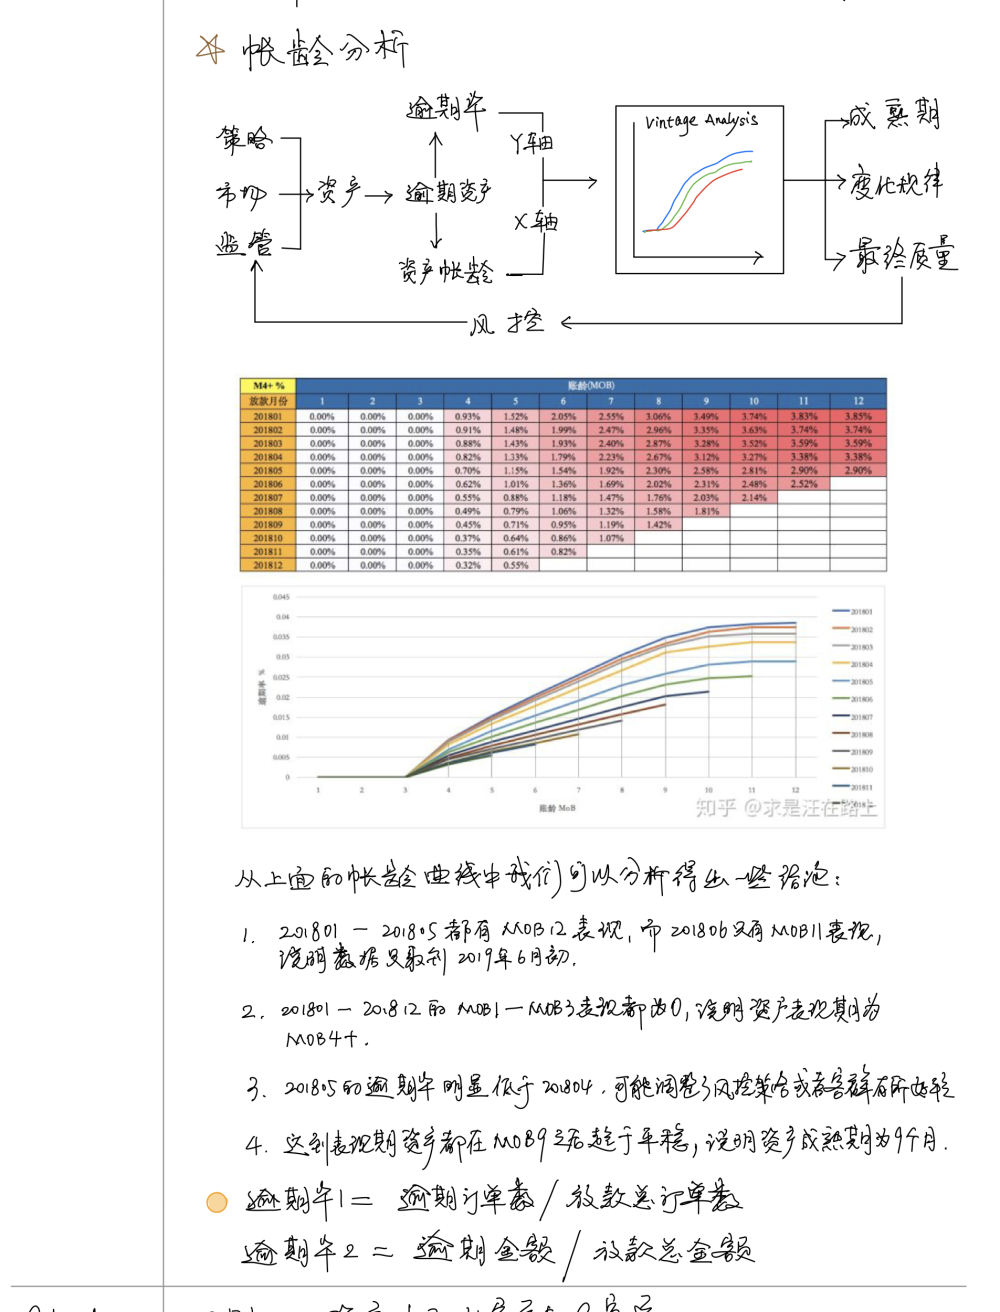 帐龄分析
策略
市场
监管
资产
逾期率
逾期资产
资产帐龄
Y轴
X轴
Vintage Analysis
成熟期
变化规律
最终质量
风控
M4+ % 账龄(MOB)
放款月份 1 2 3 4 5 6 7 8 9 10 11 12
201801 0.00% 0.00% 0.00% 0.93% 1.52% 2.05% 2.55% 3.06% 3.49% 3.74% 3.83% 3.85%
201802 0.00% 0.00% 0.00% 0.91% 1.48% 1.99% 2.47% 2.96% 3.35% 3.63% 3.74% 3.74%
201803 0.00% 0.00% 0.00% 0.88% 1.43% 1.93% 2.40% 2.87% 3.28% 3.52% 3.59% 3.59%
201804 0.00% 0.00% 0.00% 0.82% 1.33% 1.79% 2.23% 2.67% 3.12% 3.27% 3.38% 3.38%
201805 0.00% 0.00% 0.00% 0.70% 1.15% 1.54% 1.92% 2.30% 2.58% 2.81% 2.90% 2.90%
201806 0.00% 0.00% 0.00% 0.62% 1.01% 1.36% 1.69% 2.02% 2.31% 2.48% 2.52%
201807 0.00% 0.00% 0.00% 0.55% 0.88% 1.18% 1.47% 1.76% 2.03% 2.14%
201808 0.00% 0.00% 0.00% 0.49% 0.79% 1.06% 1.32% 1.58% 1.81%
201809 0.00% 0.00% 0.00% 0.45% 0.71% 0.95% 1.19% 1.42%
201810 0.00% 0.00% 0.00% 0.37% 0.64% 0.86% 1.07%
201811 0.00% 0.00% 0.00% 0.35% 0.61% 0.82%
201812 0.00% 0.00% 0.00% 0.32% 0.55%
0.045
0.04
0.035
0.03
0.025
0.02
0.015
0.01
0.005
0
逾期率 %
1 2 3 4 5 6 7 8 9 10 11 12
账龄 MoB
201801
201802
201803
201804
201805
201806
201807
201808
201809
201810
201811
知乎 @求是汪在路上
从上面的帐龄曲线中我们可以分析得出一些结论:
1. 201801 — 201805都有MOB12表现, 而201806只有MOB11表现,
说明数据只取到2019年6月初.
2. 201801 — 201812的MOB1—MOB3表现都为0, 说明资产表现期为
MOB4+.
3. 201805的逾期率明显低于201804, 可能调整了风控策略或者客群有所好转
4. 达到表现期资产都在MOB9之后趋于平稳, 说明资产成熟期为9个月.
逾期率1 = 逾期订单数 / 放款总订单数
逾期率2 = 逾期金额 / 放款总金额